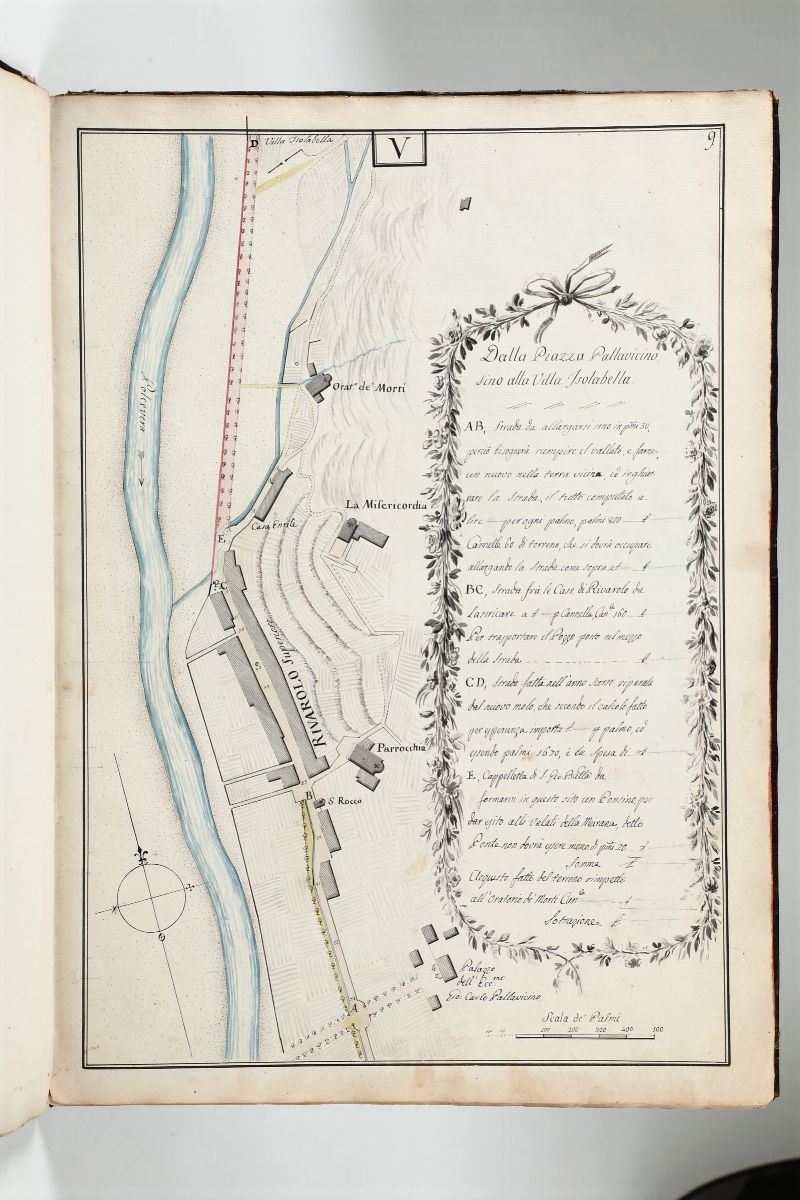 9
V
D Villa Isolabella
Polcevera
Orat.º de' Morti
La Misericordia
Casa Enrile
E
C
RIVAROLO Superiore
Parrocchia
B
S. Rocco
A
Palazzo
dell' Ecc.mo
Gio: Carlo Pallavicino
Dalla Piazza Pallavicino,
sino alla Villa Isolabella.
AB, Strada da allargarsi sino in p̄mi 30,
perciò bisognerà riempire il vallato, e farne
un nuovo nella terra vicina, ed inghiar
rare la Strada, il tutto computato a
lire — per ogni palmo, palmi 820 — £
Cannelle 60 di terreno, che si dovrà occupare
allargando la Strada come sopra a £ — £
BC, Strada frà le Case di Rivarolo da
Lastricare a £ — p Cannella, Can.e 160 — £
Per trasportare il Pozzo posto nel mezzo
della Strada — £
CD, Strada fatta nell'anno scorso, riparata
dal nuovo molo, che secondo il calcolo fatto
per esperienza importa £ — p palmo, ed
essendo palmi 1670, è la spesa di — £
E, Cappelletta di S. Gio Batta da
formarvi in questo sito un Pontino, per
dar esito alli Valati della Muraxa, detto
Ponte non dovrà essere meno di p̄mi 20 — £
Somma £
Acquisto fatto del terreno rimpetto
all'Oratorio de' Morti Can.e — £
Sotrazione £
Scala de' Palmi
100 200 300 400 500